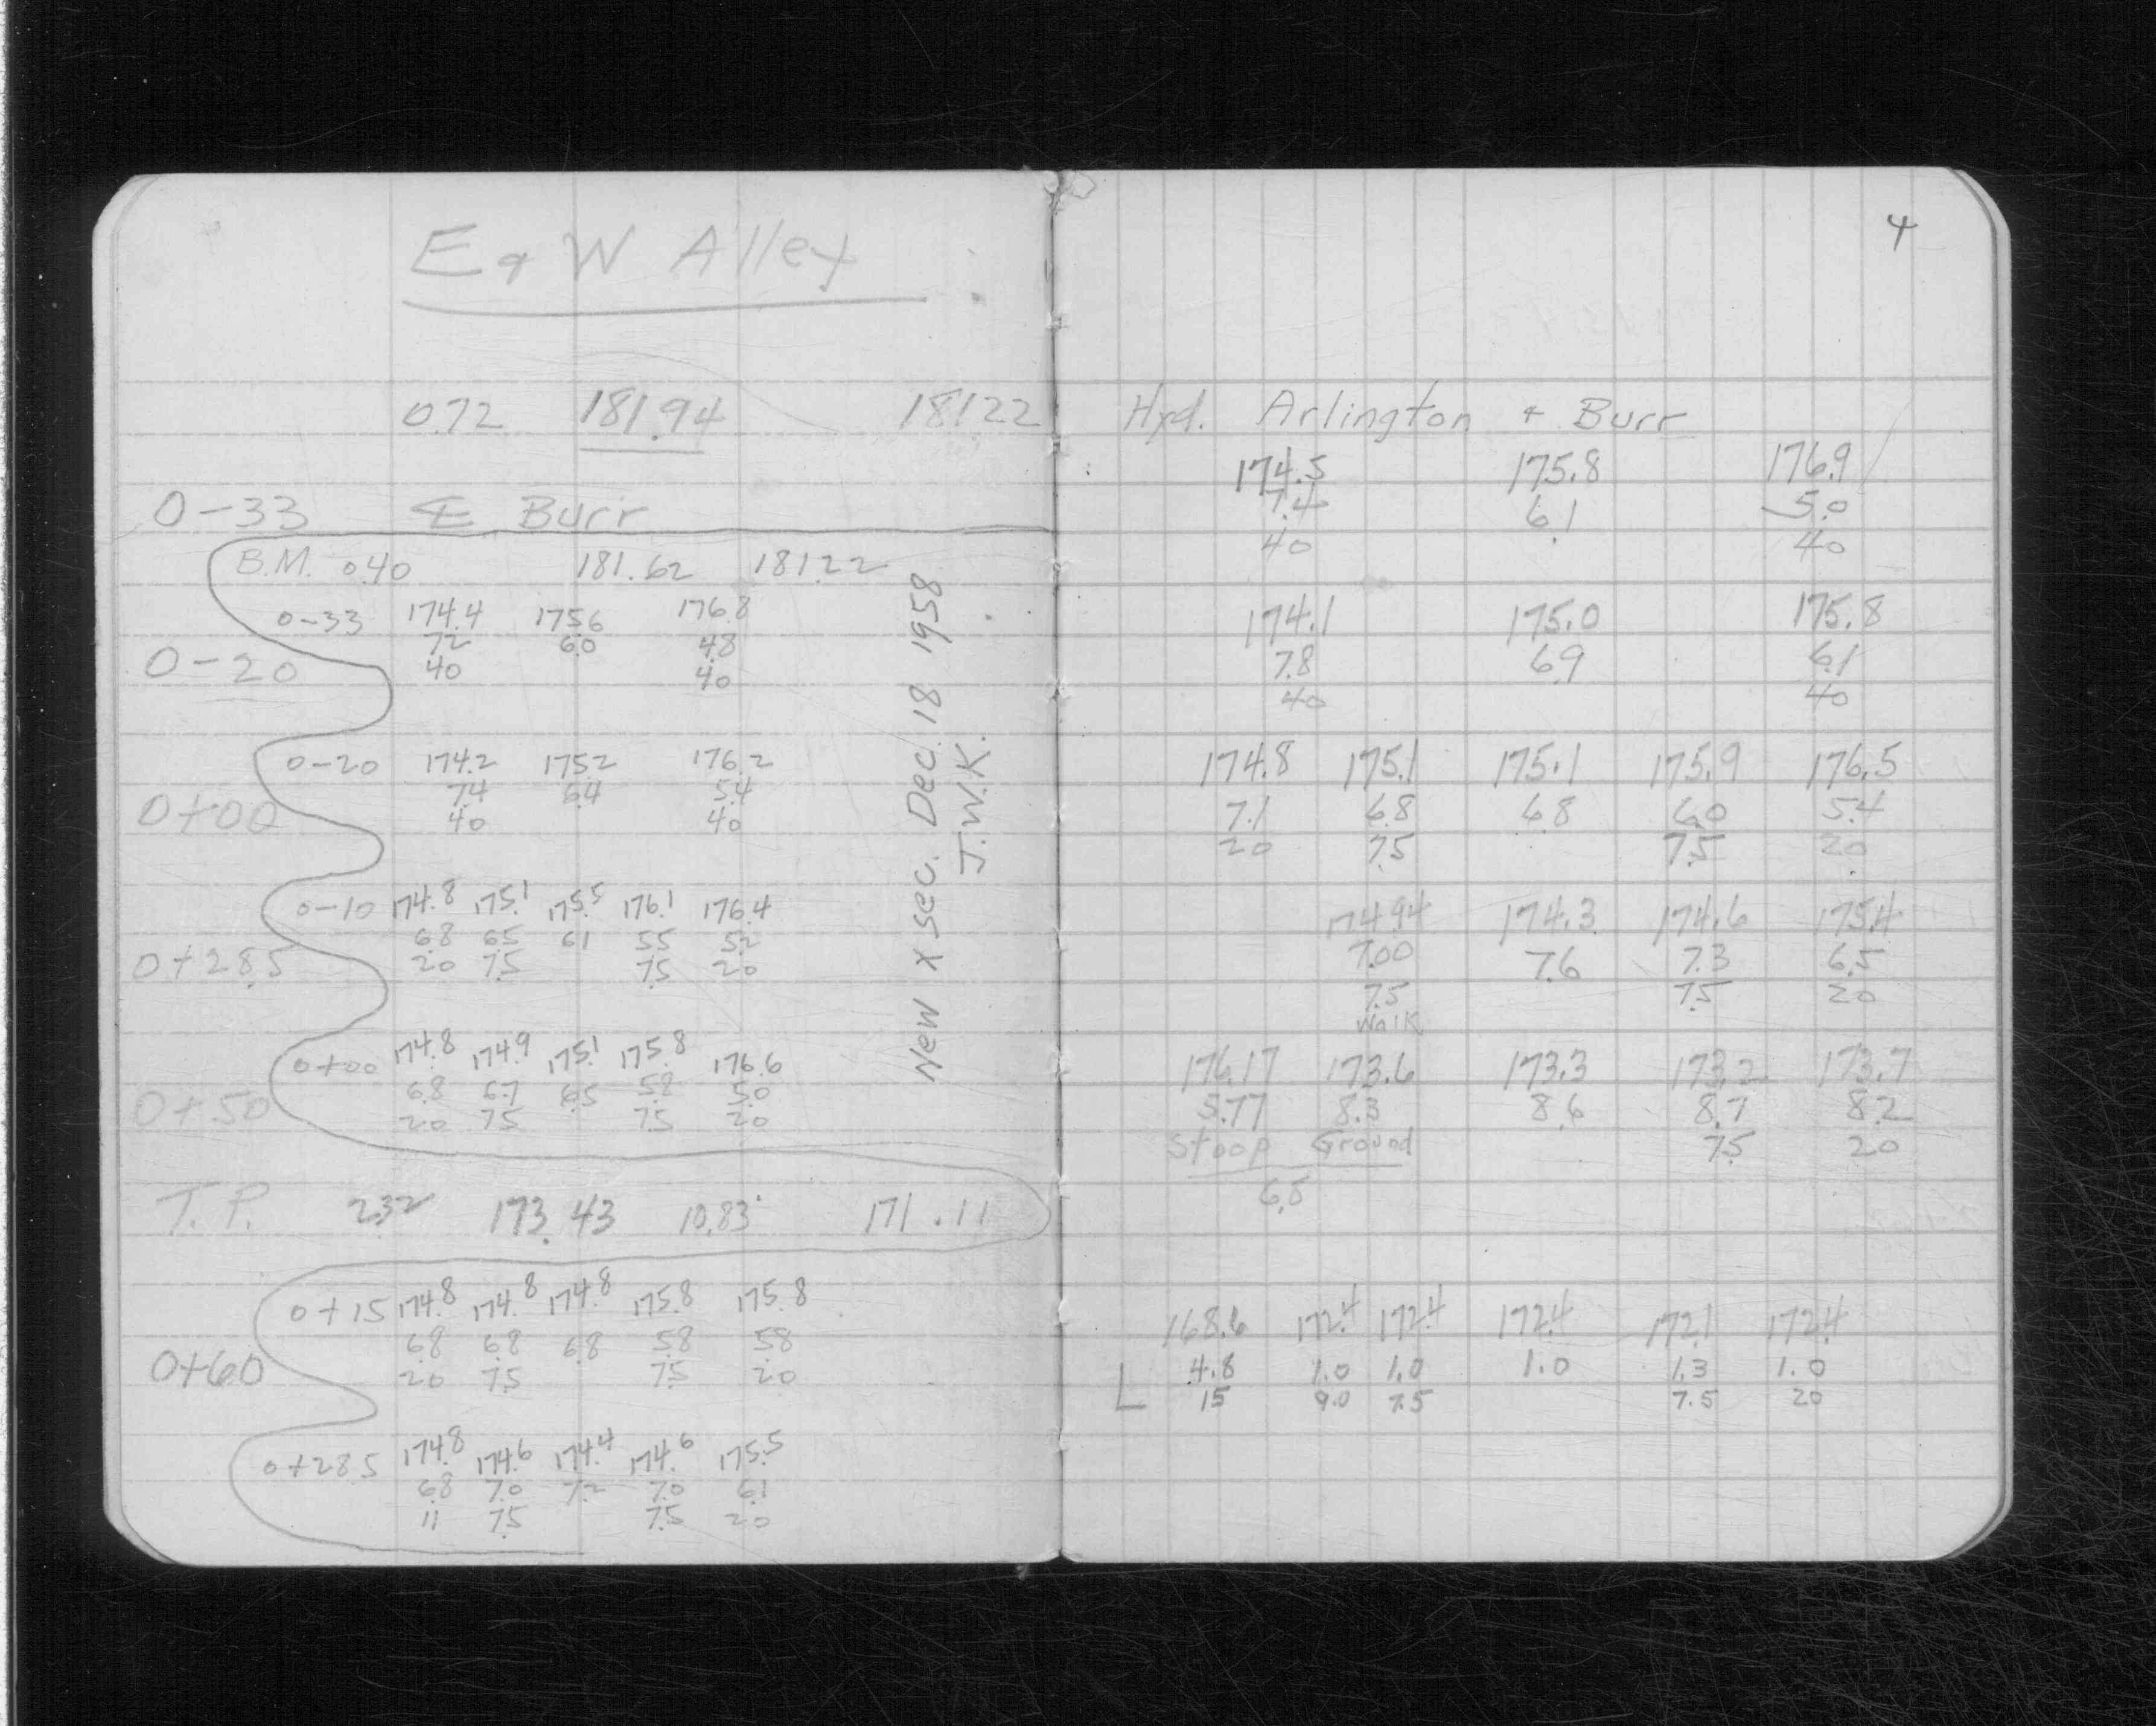 E & W Alley
0.72 181.94 181.22
0-33 ℄ Burr
B.M. 0.40 181.62 181.22
0-33 174.4 175.6 176.8
7.2 6.0 4.8
40 40
0-20
0-20 174.2 175.2 176.2
7.4 6.4 5.4
40 40
0+00
0-10 174.8 175.1 175.5 176.1 176.4
6.8 6.5 6.1 5.5 5.2
20 7.5 7.5 20
0+28.5
0+00 174.8 174.9 175.1 175.8 176.6
6.8 6.7 6.5 5.8 5.0
20 7.5 7.5 20
0+50
T.P. 2.32 173.43 10.83 171.11
0+15 174.8 174.8 174.8 175.8 175.8
6.8 6.8 6.8 5.8 5.8
20 7.5 7.5 20
0+60
0+28.5 174.8 174.6 174.4 174.6 175.5
6.8 7.0 7.2 7.0 6.1
11 7.5 7.5 20
New X sec. Dec. 18 1958
J.W.K.
4
Hyd. Arlington & Burr
174.5 175.8 176.9
7.4 6.1 5.0
40 40
174.1 175.0 175.8
7.8 6.9 6.1
40 40
174.8 175.1 175.1 175.9 176.5
7.1 6.8 6.8 6.0 5.4
20 7.5 7.5 20
174.94 174.3 174.6 175.4
7.00 7.6 7.3 6.5
7.5 7.5 20
Walk
176.17 173.6 173.3 173.2 173.7
5.77 8.3 8.6 8.7 8.2
Stoop Ground 7.5 20
6.5
168.6 172.4 172.4 172.4 172.1 172.4
4.8 1.0 1.0 1.0 1.3 1.0
L 15 9.0 7.5 7.5 20